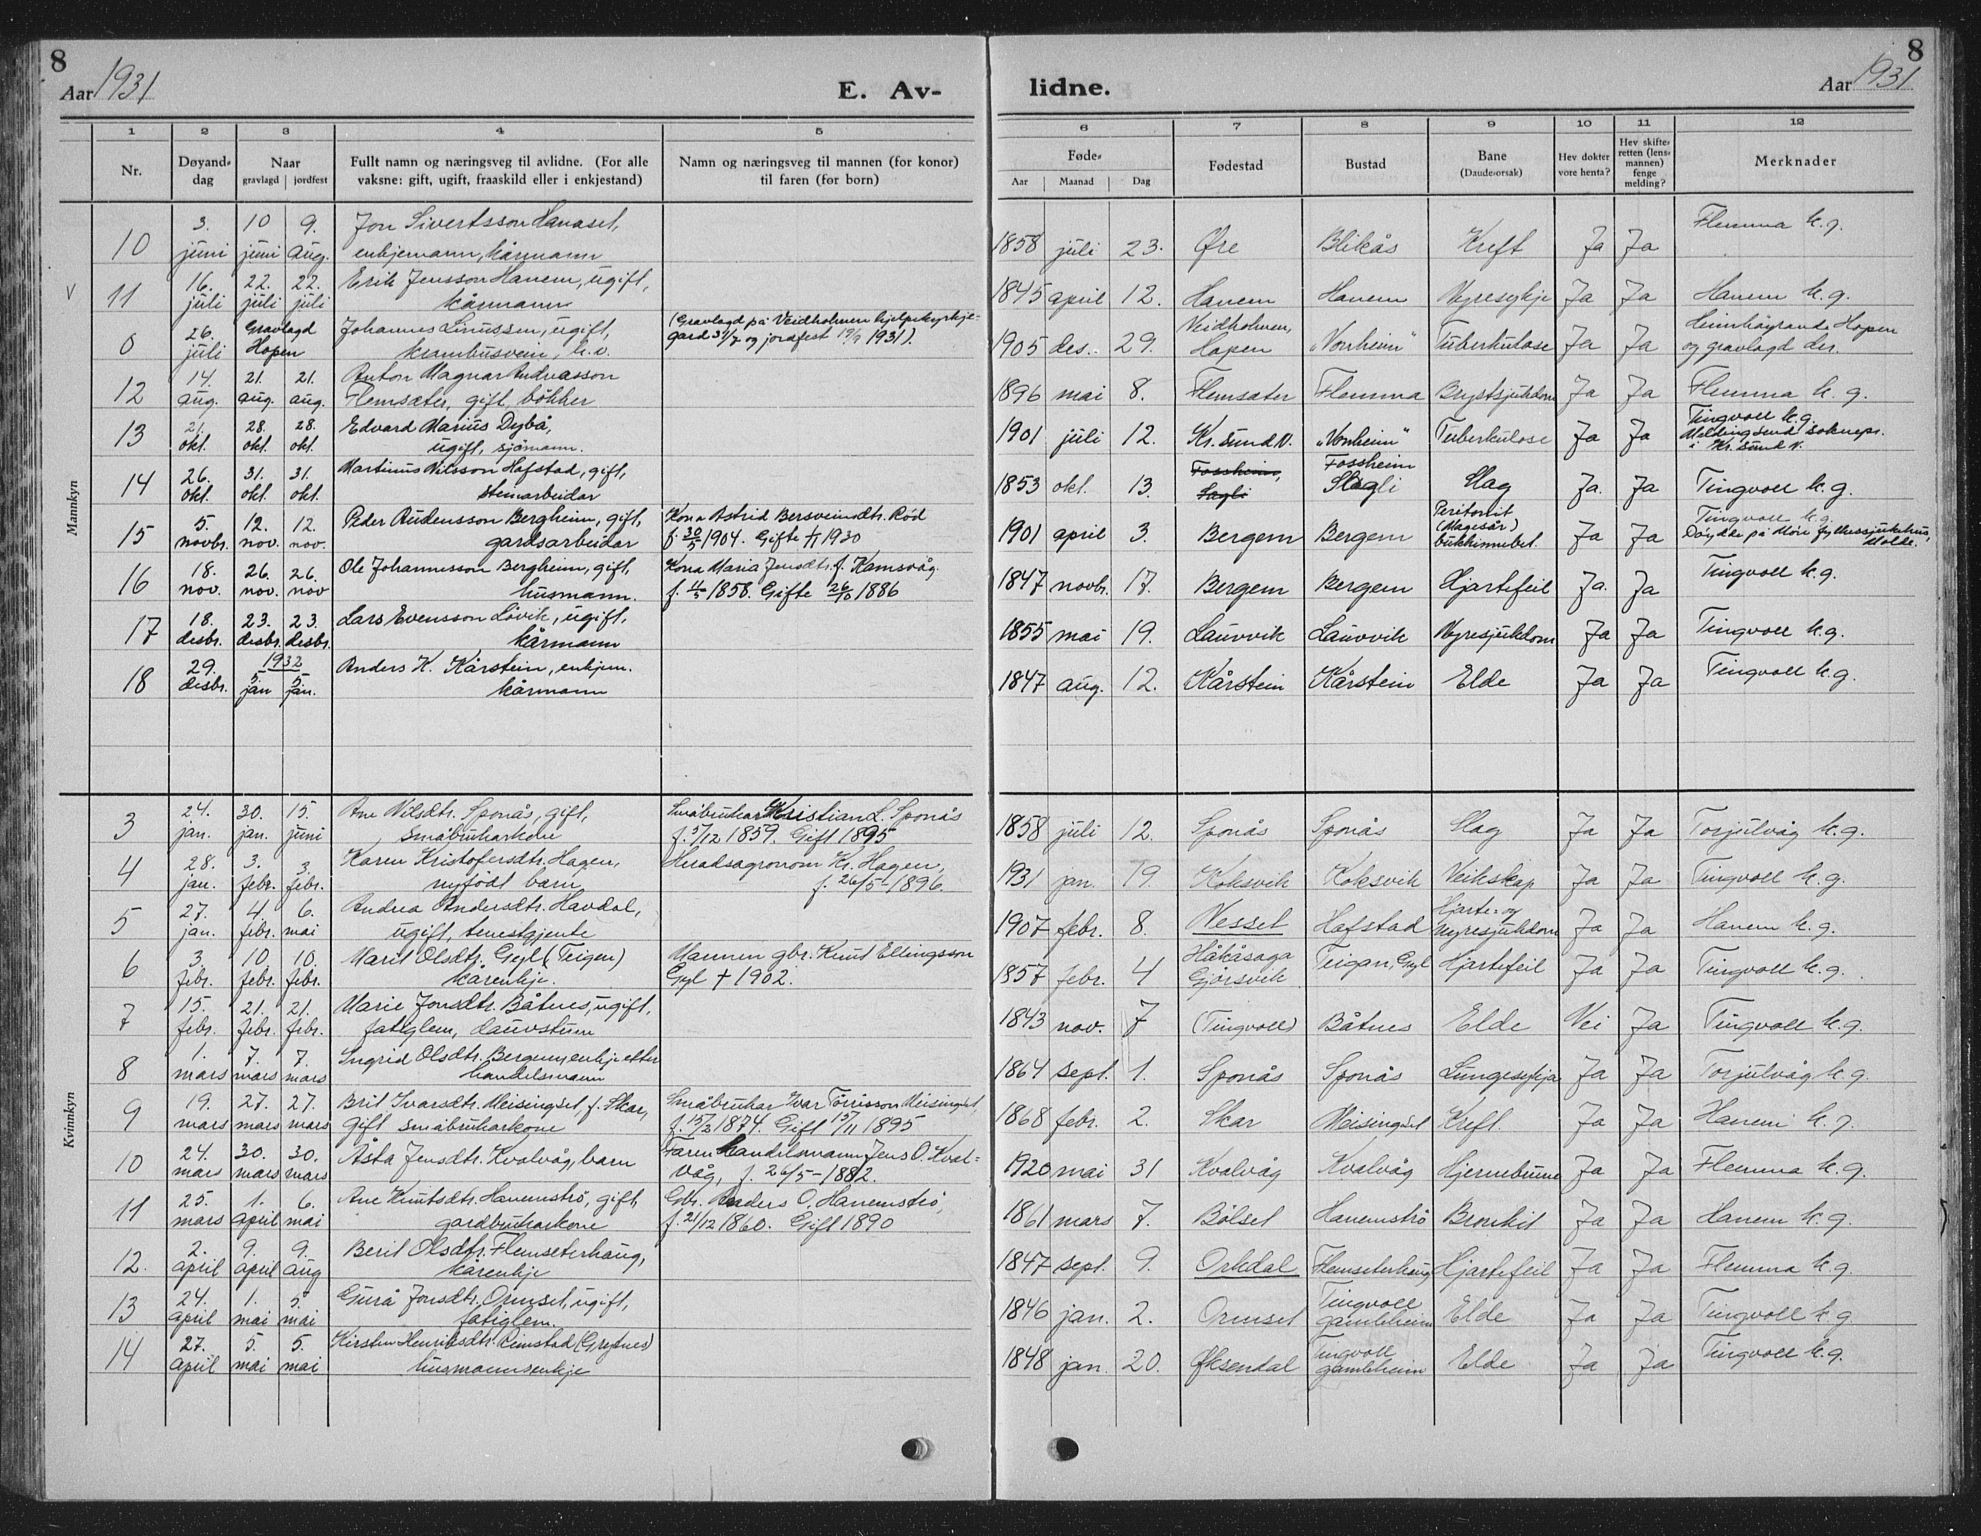 8
Aar 1931
E. Av-
lidne.
8
Aar 1931
1 2 3 4 5 6 7 8 9 10 11 12
Nr.
Døyand-
dag
Naar
gravlagd | jordfest
Fullt namn og næringsveg til avlidne. (For alle
vaksne: gift, ugift, fraaskild eller i enkjestand)
Namn og næringsveg til mannen (for konor)
til faren (for born)
Føde-
Aar | Maanad | Dag
Fødestad
Bustad
Bane
(Daude-orsak)
Hev dokter
vore henta?
Hev skifte-
retten (lens-
mannen)
fenge
melding?
Merknader
Mannkyn
3. 10 9. Jon Sivertsson Hanaset, Flemma k.g.
10 juni juni aug. enkjemann, kårmann 1858 juli 23. Øre Blikås Kreft Ja Ja
16. 22. 22. Erik Jensson Hanem, ugift,
v 11 juli juli juli kårmann 1845 april 12. Hanem Hanem Nyresykje Ja Ja Hanem k.g.
26. Gravlagd Johannes Linussen, ugift, (Gravlagd på Veidholmen hjelpekyrkje- Veidholmen, Heimhøyrande Hopen
0 juli Hopen krambusvein, gard 31/7 og jordfest 19/9 1931). 1905 des. 29. Hopen "Vonheim" Tuberkulose Ja Ja og gravlagd der.
14. 21. 21. Anton Magnar Andreasson
12 aug. aug. aug. Flemsæter, gift, bøkker 1896 mai 8. Flemsæter Flemma Brystsjukdom Ja Ja Flemma k.g.
21. 28. 28. Edvard Marius Dybå, Tingvoll k.g.
13 okt. okt. okt. ugift, sjømann. 1901 juli 12. Kr.sund N. "Vonheim" Tuberkulose Ja Ja Melding send soknepr.
i Kr.sund N.
26. 31. 31. Martinus Nilsson Hafstad, gift, Fossheim, Fossheim
14 okt. okt. okt. steinarbeidar 1853 okt. 13. Sagli Slagli Slag Ja. Ja Tingvoll k.g.
5. 12. 12. Peder Audensson Bergheim, gift, Kona Astrid Bersveinsdtr. Rød Peritonit Tingvoll k.g.
15 novbr. nov. nov. gardsarbeidar f. 30/5 1904. Gifte 1930 1901 april 3. Bergem Bergem (Magesår) bukhinnebet. Ja Ja Døydde på Møre fylkessjukehus, Molde.
18. 26. 26. Ole Johannesson Bergheim, gift, Kona Maria Jensdtr. f. Kamsvåg.
16 nov. nov. nov husmann. f. 1858. Gifte 26/10 1886 1847 novbr. 17. Bergem Bergem Hjartefeil Ja. Ja Tingvoll k.g.
18. 23. 23. Lars Evensson Løvik, ugift,
17 desbr. desbr. desbr. kårmann 1855 mai 19. Lauvvik Lauvvik Nyresjukdom Ja Ja Tingvoll k.g.
29. 1932 Anders K. Kårstein, enkjem.
18 desbr. 5. jan 5. jan. kårmann 1847 aug. 12. Kårstein Kårstein Elde Ja Ja Tingvoll k.g.
Kvinnkyn
24. 30. 15. Ane Nilsdtr. Sponås, gift, Småbrukar Kristian L. Sponås
3 jan. jan. juni småbrukarkone f. 5/12 1859. Gift 1895 1858 juli 12. Sponås Sponås Slag Ja Ja Torjulvåg k.g.
28. 3. 3. Karen Kristofersdtr. Hagen, Heradsagronom Kr. Hagen,
4 jan. febr. febr. nyfødt barn f. 26/5-1896. 1931 jan. 19 Koksvik Koksvik Veikskap Ja Ja Tingvoll k.g.
27. 4 6. Andrea Andersdtr. Havdal, Hjarte- og
5 jan. febr. mai ugift, tenestgjente 1907 febr. 8. Nesset Hafstad Nyresjukdom Ja Ja Hanem k.g.
3. 10 10. Marit Olsdtr. Gyl (Teigen) Mannen gbr. Knut Ellingsson Håkåsaga
6 febr. febr. febr. kårenkje. Gyl † 1902. 1857 febr. 4 Gjørsvik Teigan, Gyl Hjartefeil Ja Ja Tingvoll k.g.
15. 21. 21. Marie Jonsdtr. Båtnes, ugift,
7 febr. febr. febr. fatiglem, dauvstum 1843 nov. 7 (Tingvoll) Båtnes Elde Nei Ja Tingvoll k.g.
1. 7. 7. Ingrid Olsdtr. Bergem, enkje etter
8 mars mars mars handelsmann 1864 sept. 1. Sponås Sponås Lungesykja Ja Ja Torjulvåg k.g.
19. 27. 27. Brit Ivarsdtr. Meisingset, f. Skar, Småbrukar Ivar Tørrisson Meisingset,
9 mars mars mars gift småbrukarkone f. 15/2 1874. Gift 15/11 1895 1868 febr. 2. Skar Meisingset Kreft. Ja Ja Hanem k.g.
24. 30. 30. Åsta Jensdtr. Kvalvåg, barn Faren Handelsmann Jens O. Kval-
10 mars mars mars våg, f. 26/5-1882. 1920 mai 31 Kvalvåg Kvalvåg Hjernebrune Ja Ja Flemma k.g.
25. 1. 6. Ane Knutsdtr. Hanemstrø, gift, Gbr. Anders O. Hanemstrø,
11 mars april mai gardbrukarkone f. 21/12 1860. Gift 1890 1861 mars 7. Bølset Hanemstrø Bronkit Ja Ja Hanem k.g.
2. 9. 9. Berit Olsdtr. Flemseterhaug,
12. april april aug kårenkje 1847 sept. 9. Orkdal Flemseterhaug Hjartefeil Ja Ja Flemma k.g.
24. 1. 5. Gurå Jonsdtr. Ormset, ugift, Tingvoll
13 april mai mai fatiglem. 1846 jan. 2. Ormset gamleheim Elde Ja Ja Tingvoll k.g.
27. 5 5. Kirsten Henriksdtr. Rimstad (Grytnes) Tingvoll
14 april mai mai husmannsenkje 1848 jan. 20. Øksendal gamleheim Elde Ja Ja Tingvoll k.g.